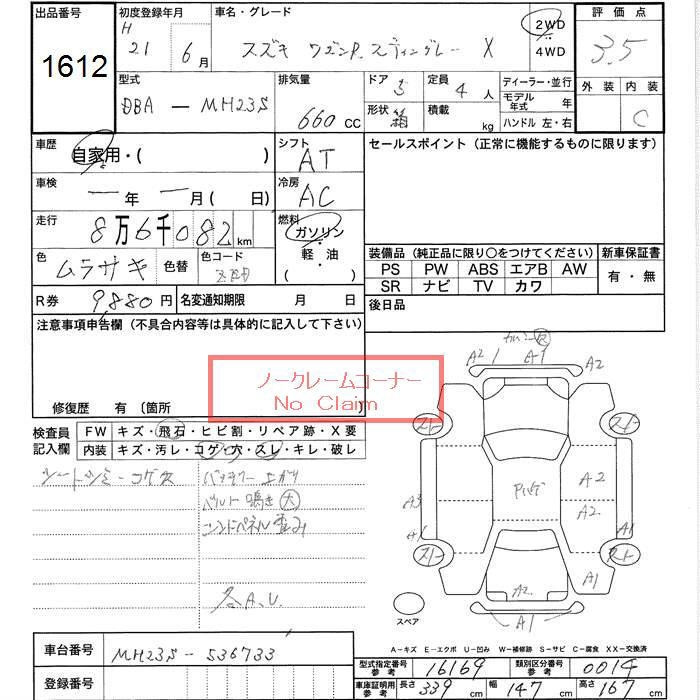 出品番号
1612
初度登録年月
H
21 6月
車名・グレード
スズキ ワゴンR スティングレー X
2WD
4WD
評価点
3.5
型式
DBA - MH23S
排気量
660 CC
ドア
5
形状
箱
定員
4人
積載
kg
ディーラー・並行
モデル年式 年
ハンドル 左・右
外装 内装
C
車歴
自家用・( )
シフト
AT
車検
年 月( 日)
冷房
AC
走行
8万6千082km
燃料
ガソリン
軽・油
( )
色
ムラサキ
色替
色コード
R券 9,880円
名変通知期限 月 日
セールスポイント(正常に機能するものに限ります)
装備品(純正品に限り○をつけてください)
PS PW ABS エアB AW
SR ナビ TV カワ
新車保証書
有・無
後日品
注意事項申告欄(不具合内容等は具体的に記入して下さい)
修復歴 有〔箇所 〕
ノークレームコーナー
No Claim
検査員記入欄
FW キズ・飛石・ヒビ割・リペア跡・X要
内装 キズ・汚レ・コゲ・穴・スレ・キレ・破レ
シートシミ・コゲ穴
バッテリー上がり
ベルト鳴き 大
コンドパネル歪み
各A.U.
A2 A1 A2
A3 A1
A2
A2
A1
A1
A2
A1
スペア
A-キズ E-エクボ U-凹み W-補修跡 S-サビ C-腐食 XX-交換済
車台番号
MH23S-536733
登録番号
型式指定番号 参考 16169
類別区分番号 参考 0014
車庫証明用 参考 長さ 339cm 幅 147cm 高さ 167cm